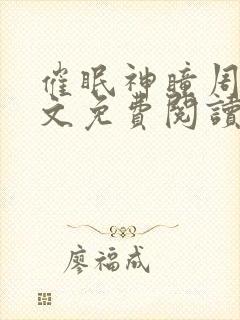 催眠神瞳周
文免費閱讀
廖福成